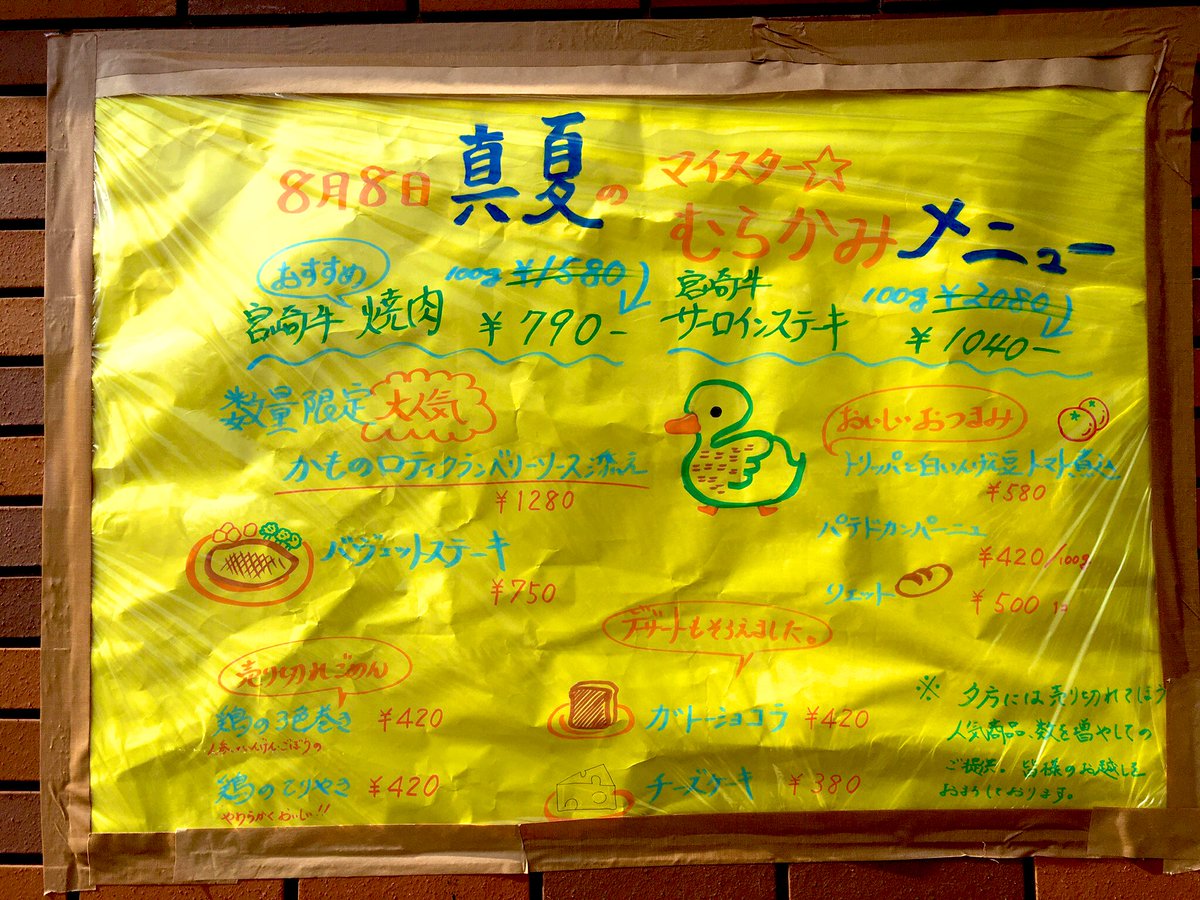 8月8日 真夏の マイスター☆
むらかみメニュー
おすすめ
100g ¥1580
宮崎牛 焼肉 ¥790-
宮崎牛
100g ¥2080
サーロインステーキ
¥1040-
数量限定 大人気
かものロティクランベリーソース添え
¥1280
バジェットステーキ
¥750
おいしいおつまみ
トリッパと白いんげん豆トマト煮込
¥580
パテドカンパーニュ
¥420/100g
リエット ¥500 1コ
売り切れごめん
鶏の3色巻き ¥420
人参、いんげん、ごぼうの
鶏のてりやき ¥420
やわらかくおいしい!!
デザートもそろえました。
ガトーショコラ ¥420
チーズケーキ ¥380
※ 夕方には売り切れてしまう
人気商品、数を増やしての
ご提供。皆様のお越しを
おまちしております。